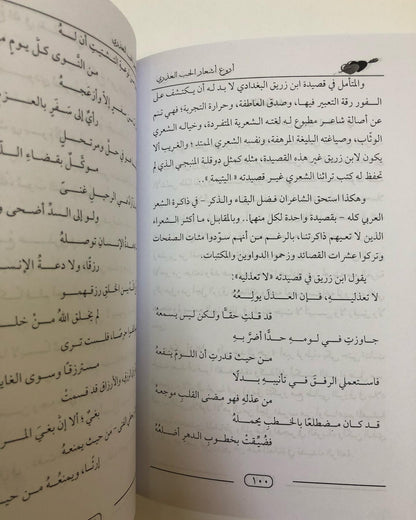 أروع أشعار الحب العذري
والمتأمل في قصيدة ابن زريق البغدادي لا بد له أن يكتشف على
الفور رقة التعبير فيها، وصدق العاطفة، وحرارة التجربة؛ فهي تنم
عن أصالة شاعر مطبوع له لغته الشعرية المتفردة، وخياله الشعري
الوثّاب، وصياغته البليغة المرهفة، ونفسه الشعري الممتد؛ والغريب ألا
يكون لابن زريق غير هذه القصيدة، مثله كمثل دوقلة المنبجي الذي لم
تحفظ له كتب تراثنا الشعري غير قصيدته «اليتيمة»..
وهكذا استحق الشاعران فضل البقاء والذكر - في ذاكرة الشعر
العربي كله - بقصيدة واحدة لكل منهما.. وبالمقابل، ما أكثر الشعراء
الذين لا تعيهم ذاكرتنا، بالرغم من أنهم سوّدوا مئات الصفحات
وتركوا عشرات القصائد وزحموا الدواوين والمكتبات.
يقول ابن زريق في قصيدته «لا تعذليه»:
لا تعذليـه، فـإن العـذل يولعُهُ
قد قلتِ حقًّا ولكن ليس يسمعهُ
جاوزتِ في لـومـهِ حـدًا أضرَّ بـهِ
من حيث قدرتِ أن اللـوم ينفعهُ
فاستعملي الرفق في تأنيبه بـدلًا
من عذلِهِ فهو مضنى القلب موجعهُ
قد كان مضطلعًا بالخطب يحملهُ
فضُيِّقتْ بخطوب الدهرِ أضلعُهُ
١٠٠
من النَّوى كلَّ يوم
رأيٌ إلى سفرٍ
موكَّل بقضاء
ولو إلى السدّ أضحى
رزقًا، ولا دعةُ
لم يخلق الله منْ
مسترزقًا وسوى
بغيٌ؛ ألا إنَّ بغيَ
إرثًا، ويمنعُهُ من